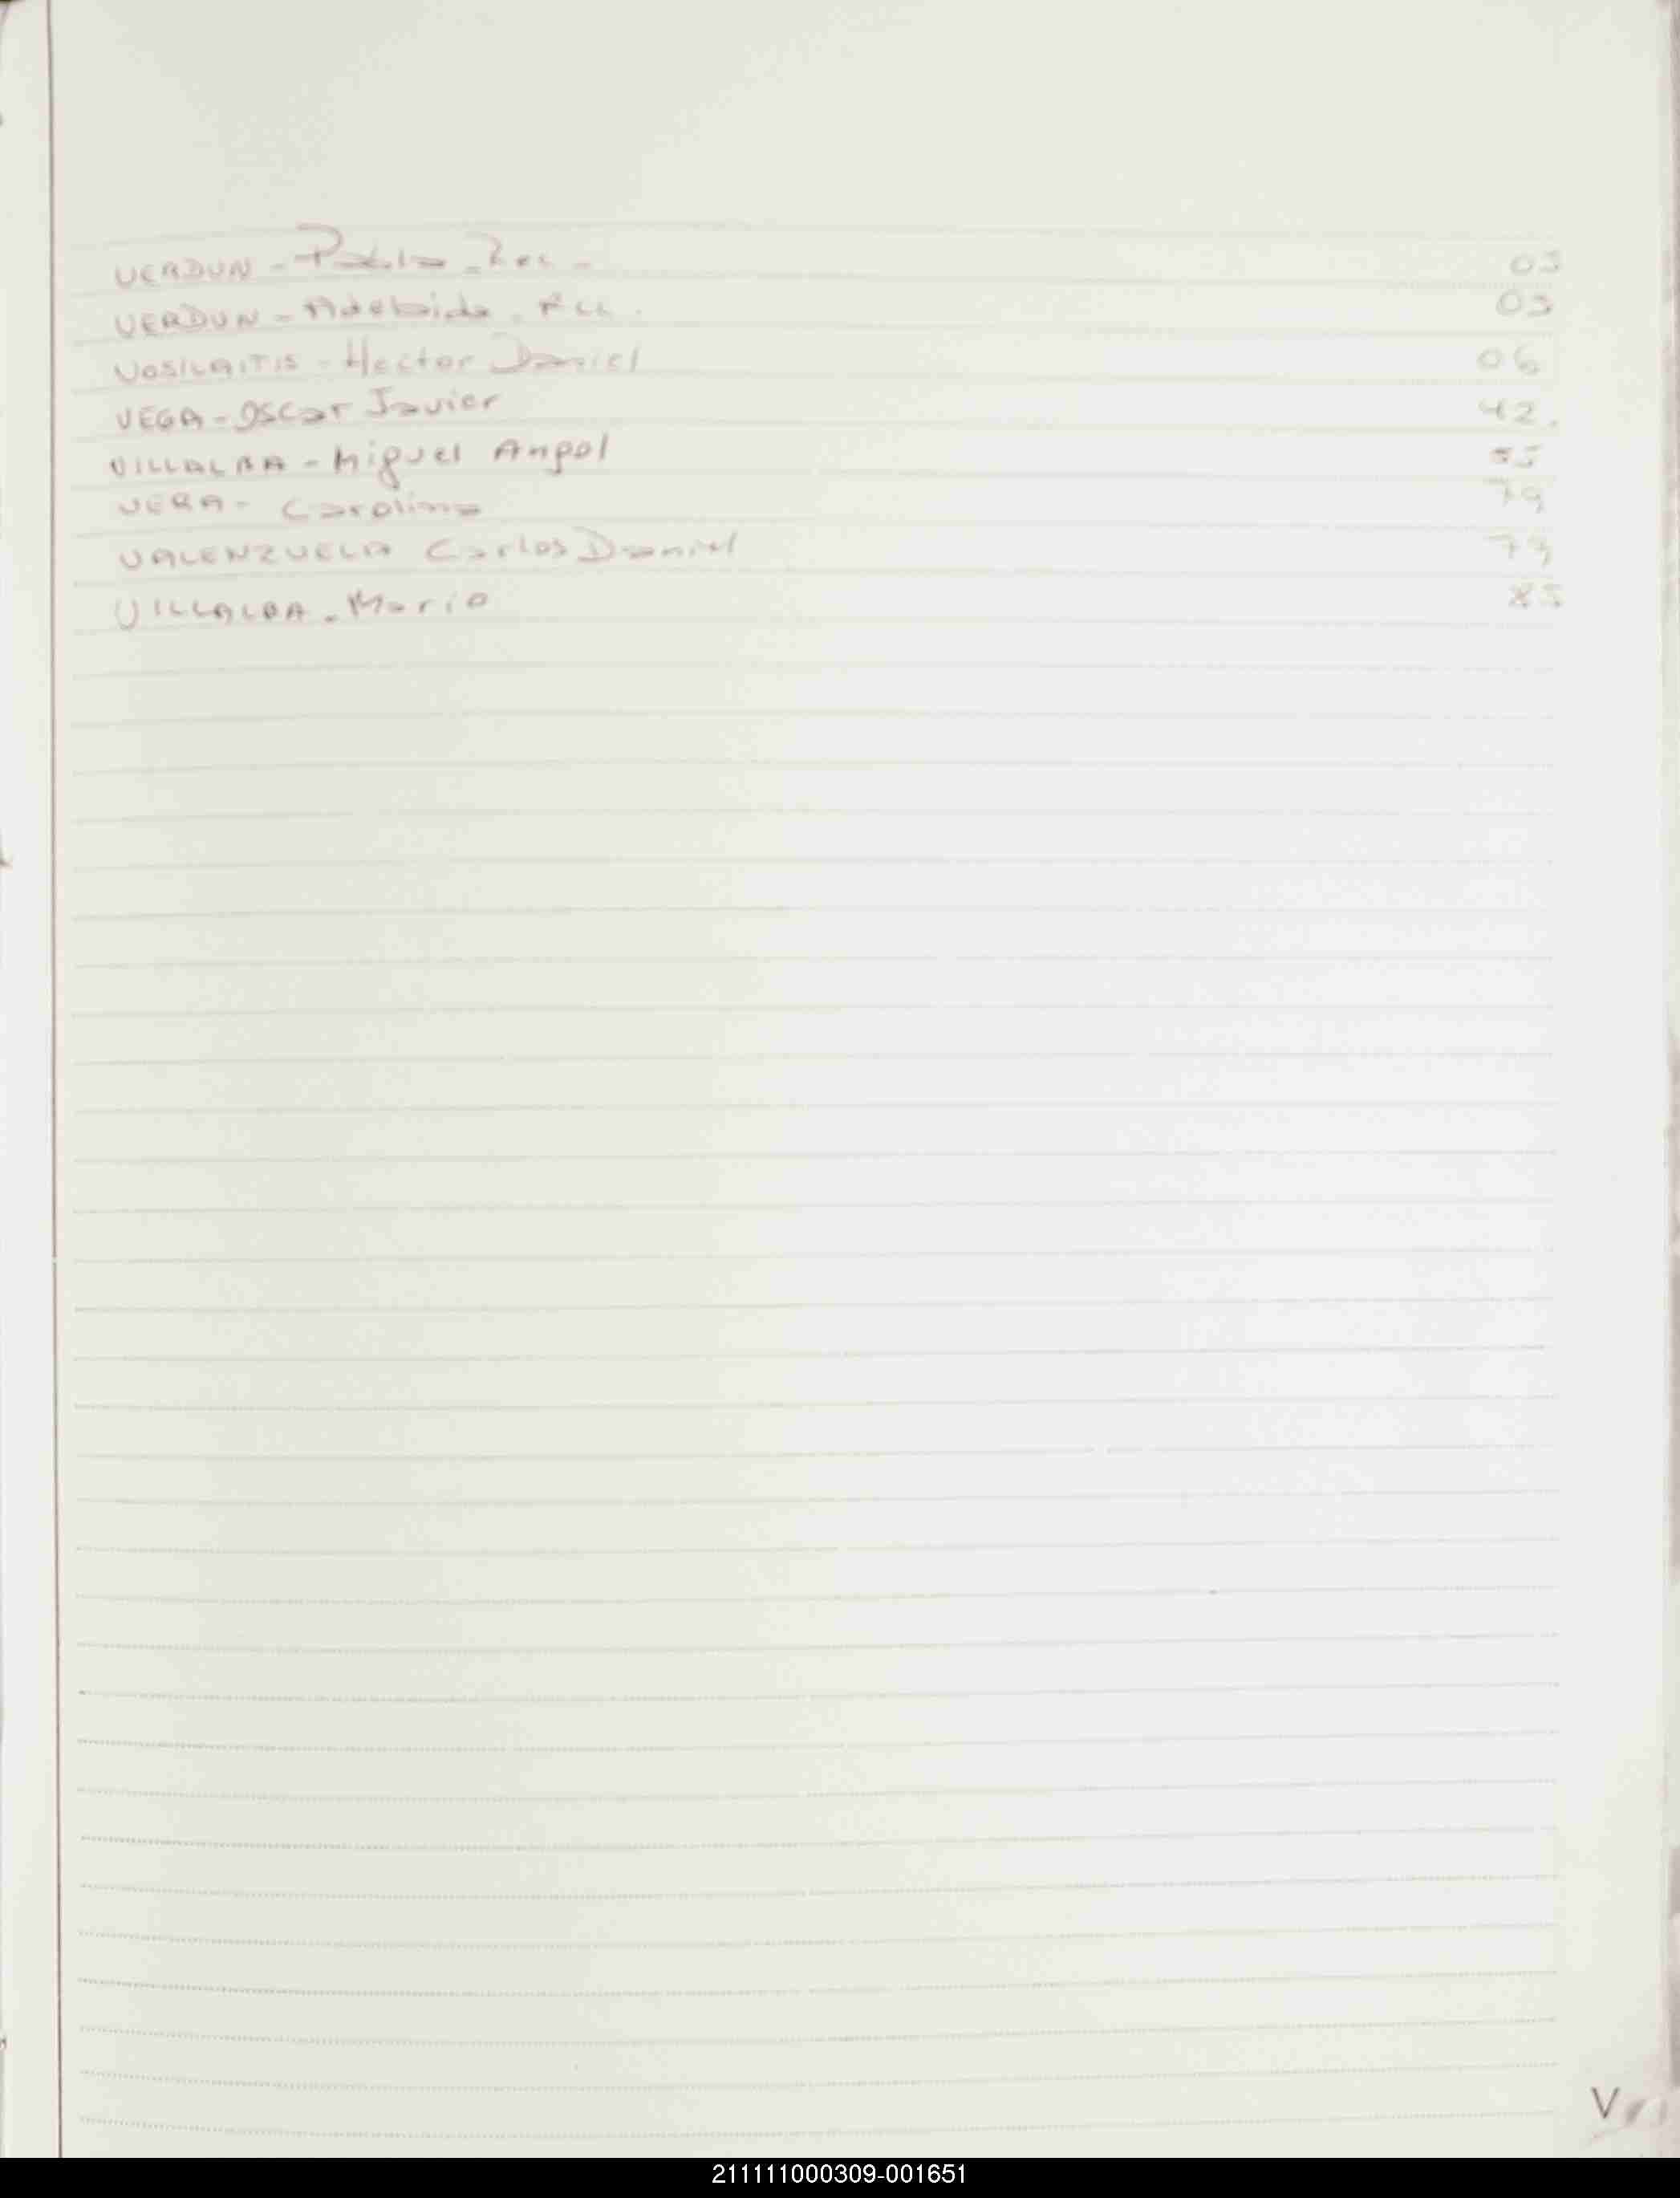 VERDUN - Pablo - Rec -                03
VERDUN - Adelaida. Rec.                03
VOSILAITIS - Hector Daniel                06
VEGA - Oscar Javier                42.
VILLALBA - Miguel Angel                55
VERA - Carolina                79
VALENZUELA Carlos Daniel                79
VILLALBA - Mario                85
V
211111000309-001651